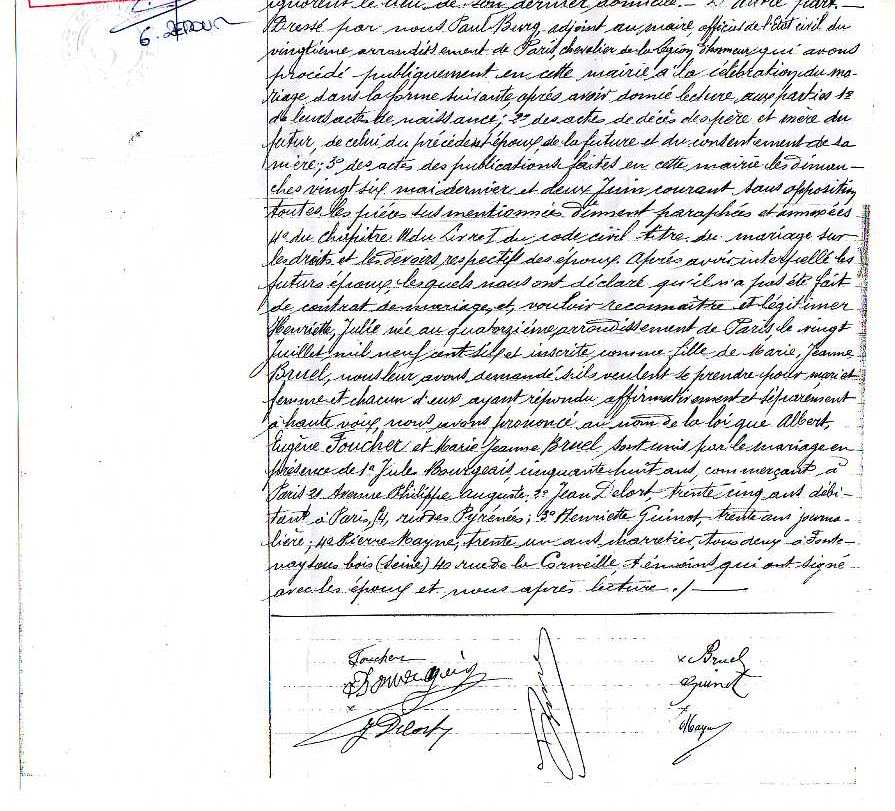 G. REBOUR
ignorent le lieu de son dernier domicile. — D'autre part. —
Dressé par nous Paul Burg adjoint au maire officier de l'Etat civil du
vingtième arrondissement de Paris, chevalier de la Légion d'honneur qui avons
procédé publiquement en cette mairie à la célébration du ma-
riage dans la forme suivante, après avoir donné lecture aux parties 1º
de leurs actes de naissance; 2º des actes de décès des père et mère du
futur, de celui du précédent époux de la future et du consentement de sa
mère; 3º des actes des publications faites en cette mairie les diman-
ches vingt six mai dernier et deux Juin courant sans opposition
toutes les pièces sus mentionnées dûment paraphées et annexées
4º du chapitre VI du Livre I du code civil titre du mariage sur
les droits et les devoirs respectifs des époux. Après avoir interpellé les
futurs époux, lesquels nous ont déclaré qu'il n'a pas été fait
de contrat de mariage et vouloir reconnaître et légitimer
Henriette, Julie née au quatorzième arrondissement de Paris le vingt
Juillet mil neuf cent six et inscrite comme fille de Marie, Jeanne
Bruel, nous leur avons demandé s'ils veulent se prendre pour mari et
femme et chacun d'eux ayant répondu affirmativement et séparément
à haute voix, nous avons prononcé au nom de la loi que Albert,
Eugène Foucher et Marie Jeanne Bruel, sont unis par le mariage en
présence de 1º Jules Bourgeais, cinquante huit ans, commerçant à
Paris 21 Avenue Philippe Auguste, 2º Jean Delort, trente cinq ans débi-
tant à Paris, 14, rue des Pyrénées; 3º Henriette Guinot, trente ans journa-
lière; 4º Pierre Mayne, trente un ans charretier tous deux à Fonte-
nay sous bois (Seine) 40 rue de la Corneille, témoins qui ont signé
avec les époux et nous après lecture ./ —
Foucher
Bourgeais
J Delort
x Bruel
Guinot
x
Mayne